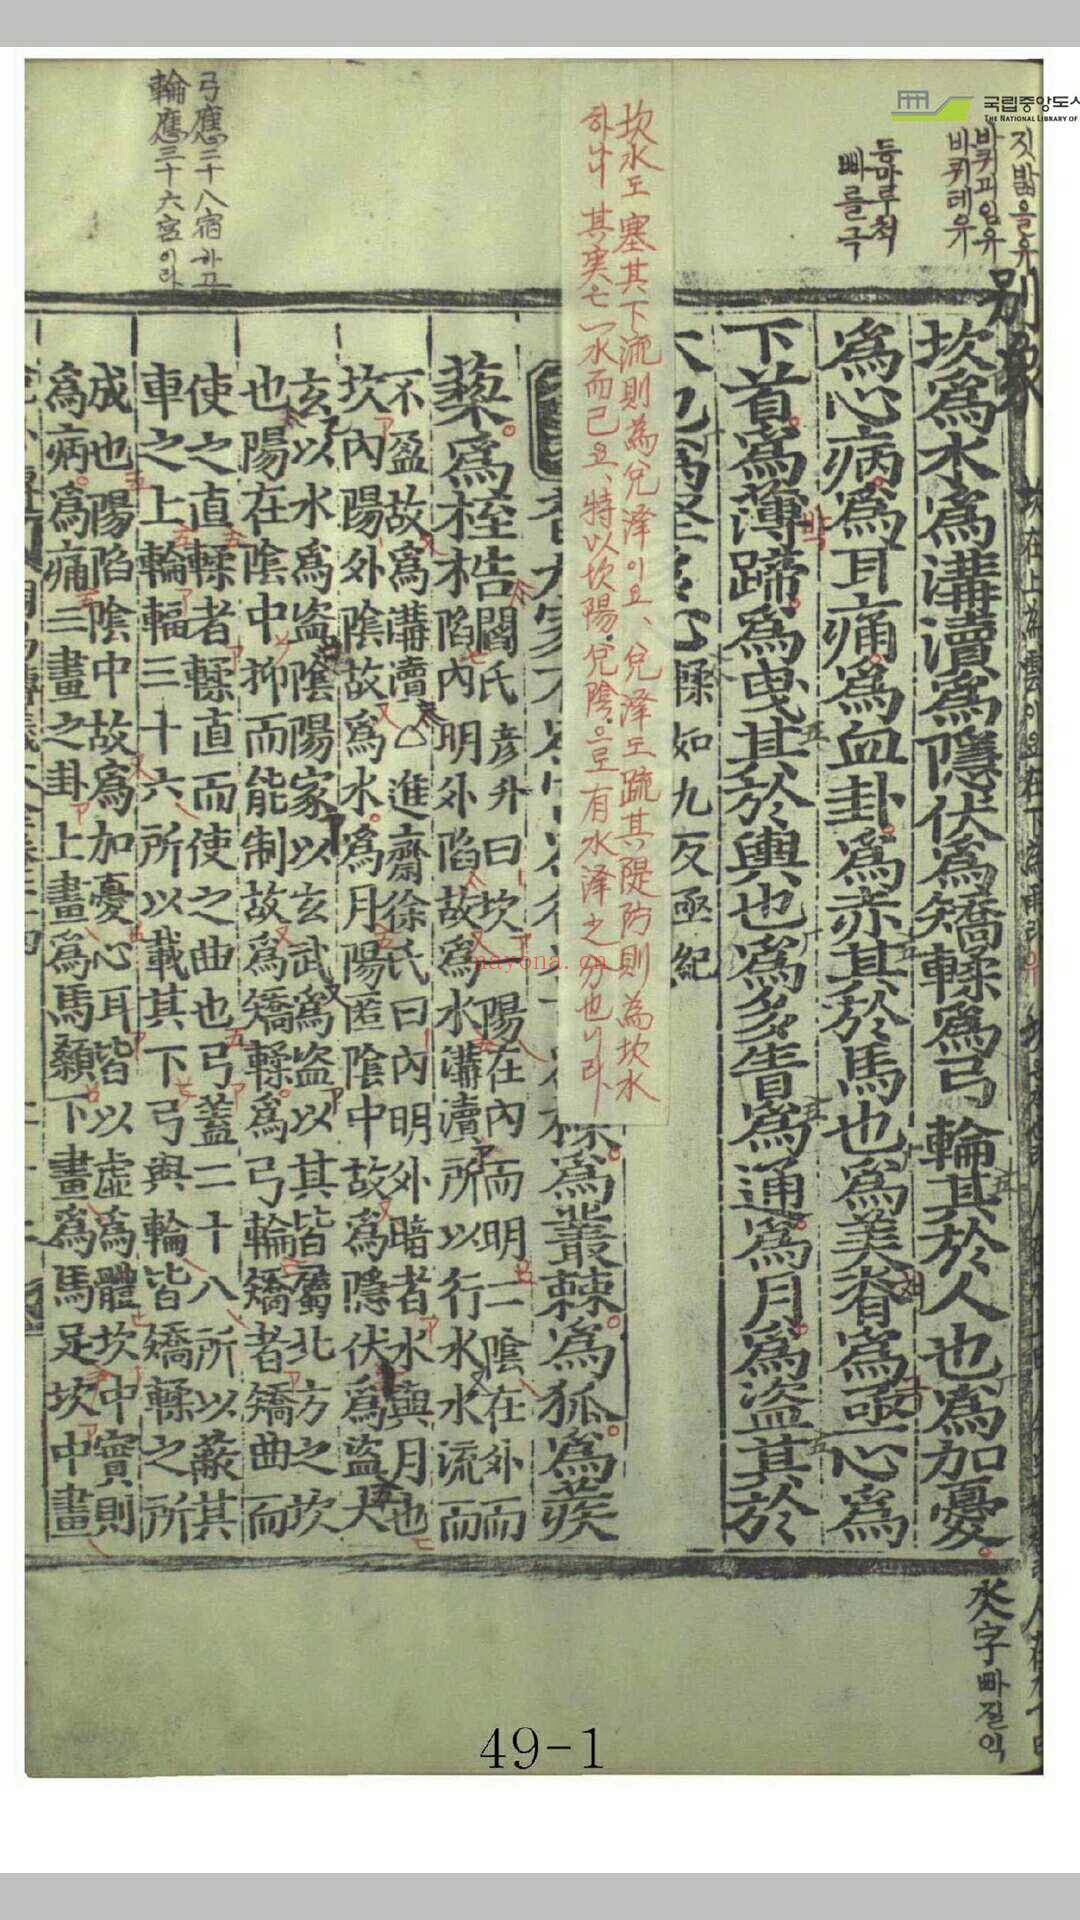 국립중앙도서
THE NATIONAL LIBRARY OF
짓밟을유
바퀴피임유
바퀴테유
등마루척
빠를극
別象
坎爲水爲溝瀆爲隱伏爲矯輮爲弓輪其於人也爲加憂
爲心病爲耳痛爲血卦爲赤其於馬也爲美脊爲亟心爲
下首爲薄蹄爲曳其於輿也爲多眚爲通爲月爲盜其於
木也爲堅多心輮如九反亟紀
坎水도塞其下流則為兌澤이요、兌澤도疏其隄防則為坎水
하나 其実은一水而已요、特以坎陽、兌陰으로有水澤之分也니라
爲叢棘爲狐爲蒺
藜爲桎梏
閻氏彦升曰坎陽在內而明二陰在外而
陷內明外陷故爲水溝瀆所以行水水流而
不盈故爲溝瀆○進齋徐氏曰內明外暗者水與月也
坎內陽外陰故爲水爲月陽匿陰中故爲隱伏爲盜
玄以水爲盜陰陽家以玄武爲盜以其皆屬北方之坎
也陽在陰中抑而能制故爲矯輮爲弓輪矯者矯曲而
使之直輮者輮直而使之曲也弓蓋二十八所以蔽其
車之上輪輻三十六所以載其下弓與輪皆矯輮之所
成也陽陷陰中故爲加憂心耳皆以虛爲體坎中實則
爲病爲痛三畫之卦上畫爲馬顙下畫爲馬足坎中畫
弓應二十八宿하고
輪應三十六宮이라
字빠질익
nayona.cn
49-1